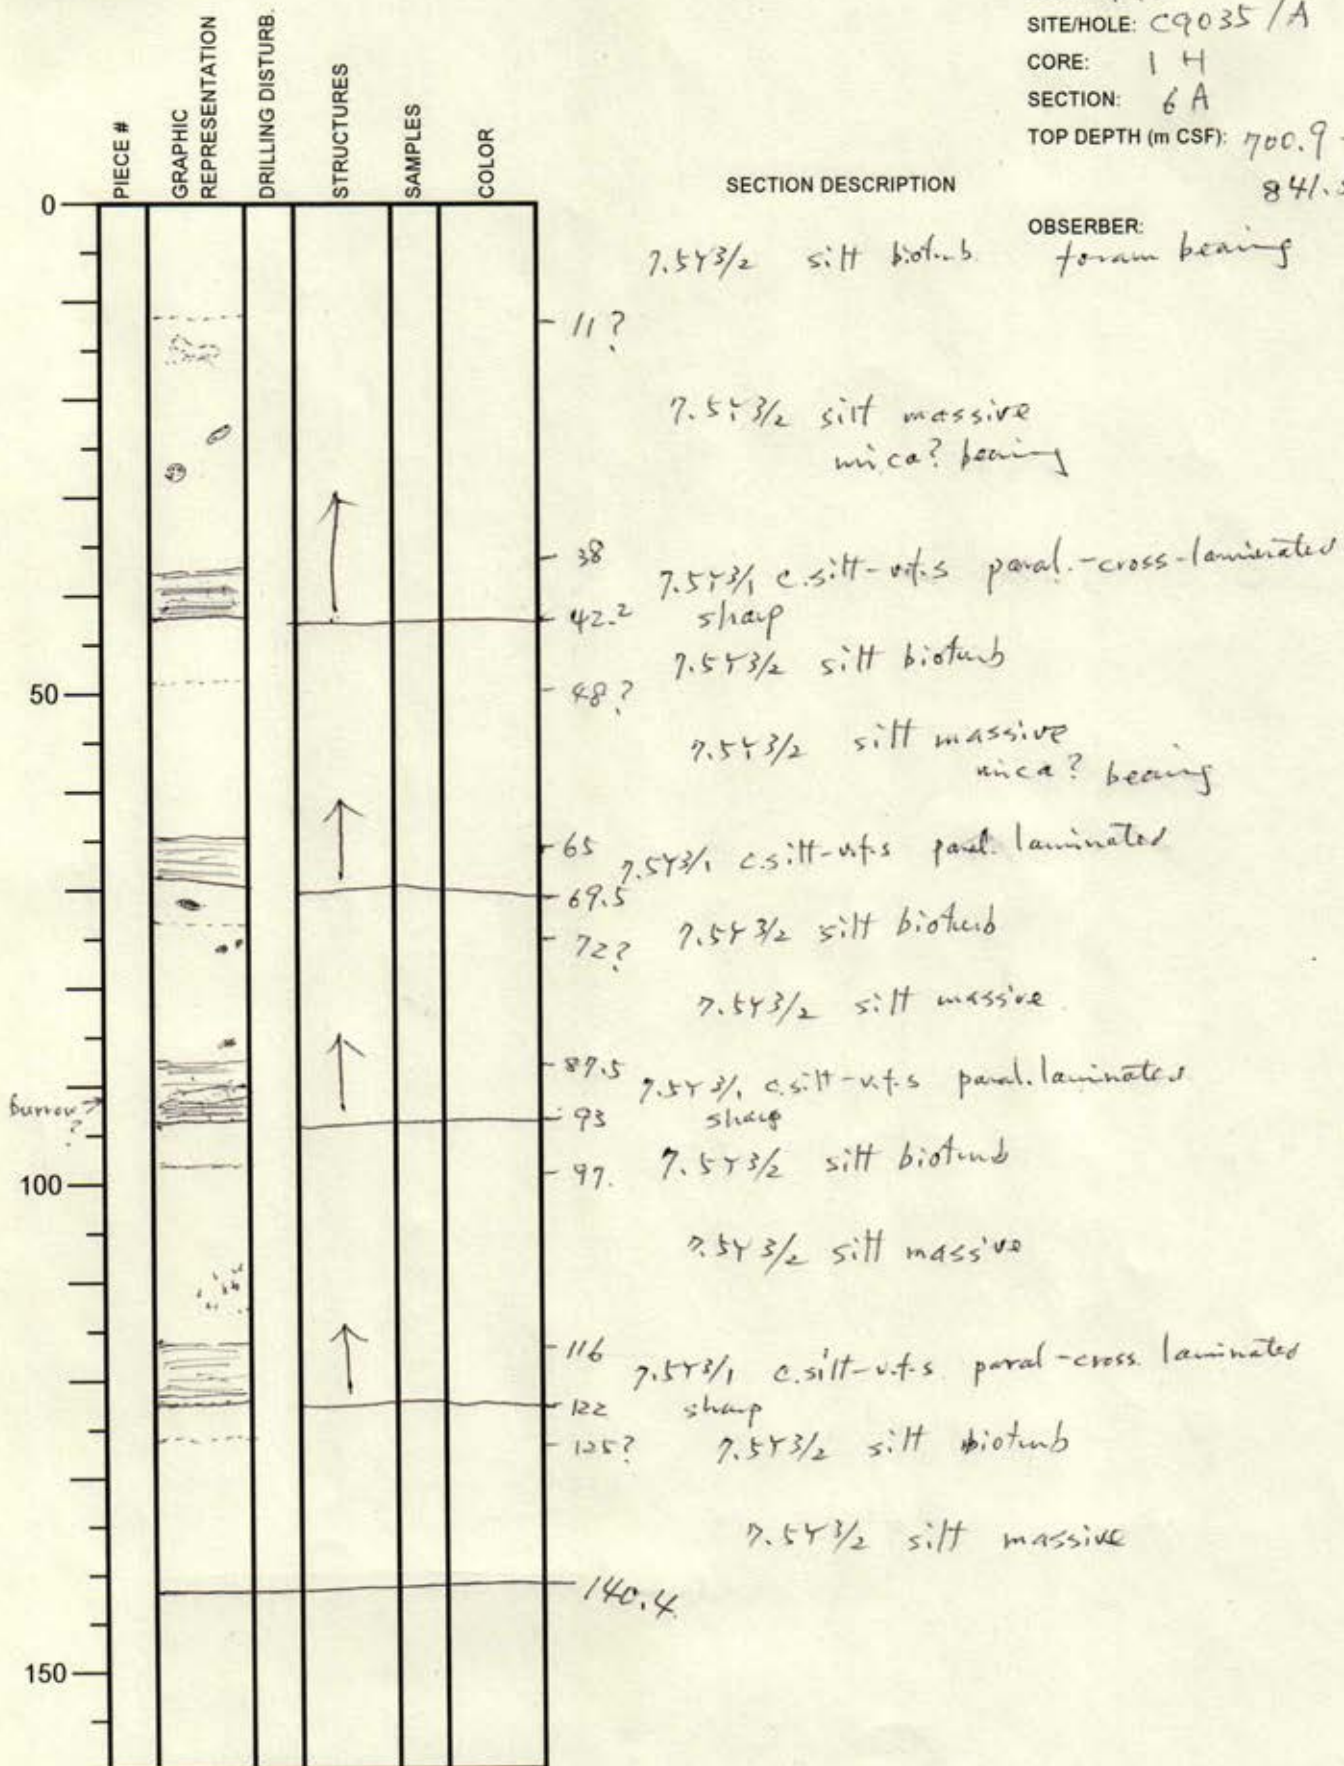 SITE/HOLE: C9035 / A
CORE: 1 H
SECTION: 6 A
TOP DEPTH (m CSF): 700.9 -
841.
PIECE #
GRAPHIC REPRESENTATION
DRILLING DISTURB.
STRUCTURES
SAMPLES
COLOR
SECTION DESCRIPTION
OBSERBER:
0
7.5Y3/2 silt bioturb. foram bearing
11?
7.5Y3/2 silt massive
mica? bearing
38
7.5Y3/1 c.silt-v.f.s paral.-cross-laminated
42.2 sharp
7.5Y3/2 silt bioturb
50
48?
7.5Y3/2 silt massive
mica? bearing
65 7.5Y3/1 c.silt-v.f.s paral. laminated
69.5
72? 7.5Y3/2 silt bioturb
7.5Y3/2 silt massive
87.5 7.5Y3/1 c.silt-v.f.s paral. laminated
burrow?
93 sharp
100
97. 7.5Y3/2 silt bioturb
7.5Y3/2 silt massive
116 7.5Y3/1 c.silt-v.f.s paral-cross. laminated
122 sharp
125? 7.5Y3/2 silt bioturb
7.5Y3/2 silt massive
140.4
150